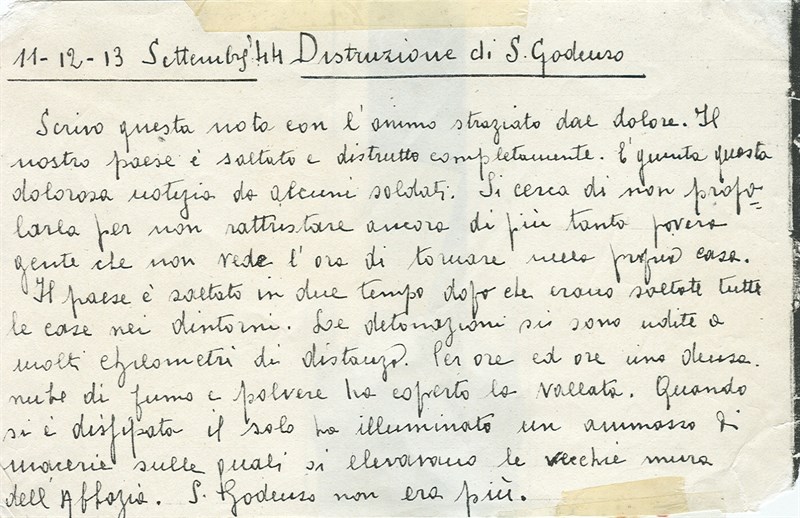 11-12-13 Settembre '44 Distruzione di S. Godenzo
Scrivo questa nota con l'animo straziato dal dolore. Il
nostro paese è saltato e distrutto completamente. È giunta questa
dolorosa notizia da alcuni soldati. Si cerca di non propa=
larla per non rattristare ancora di più tanta povera
gente che non vede l'ora di tornare nella propria casa.
Il paese è saltato in due tempo dopo che erano saltate tutte
le case nei dintorni. Le detonazioni si sono udite a
molti chilometri di distanza. Per ore ed ore una densa
nube di fumo e polvere ha coperto la vallata. Quando
si è dissipata il sole ha illuminato un ammasso di
macerie sulle quali si elevavano le vecchie mura
dell'Abbazia. S. Godenzo non era più.